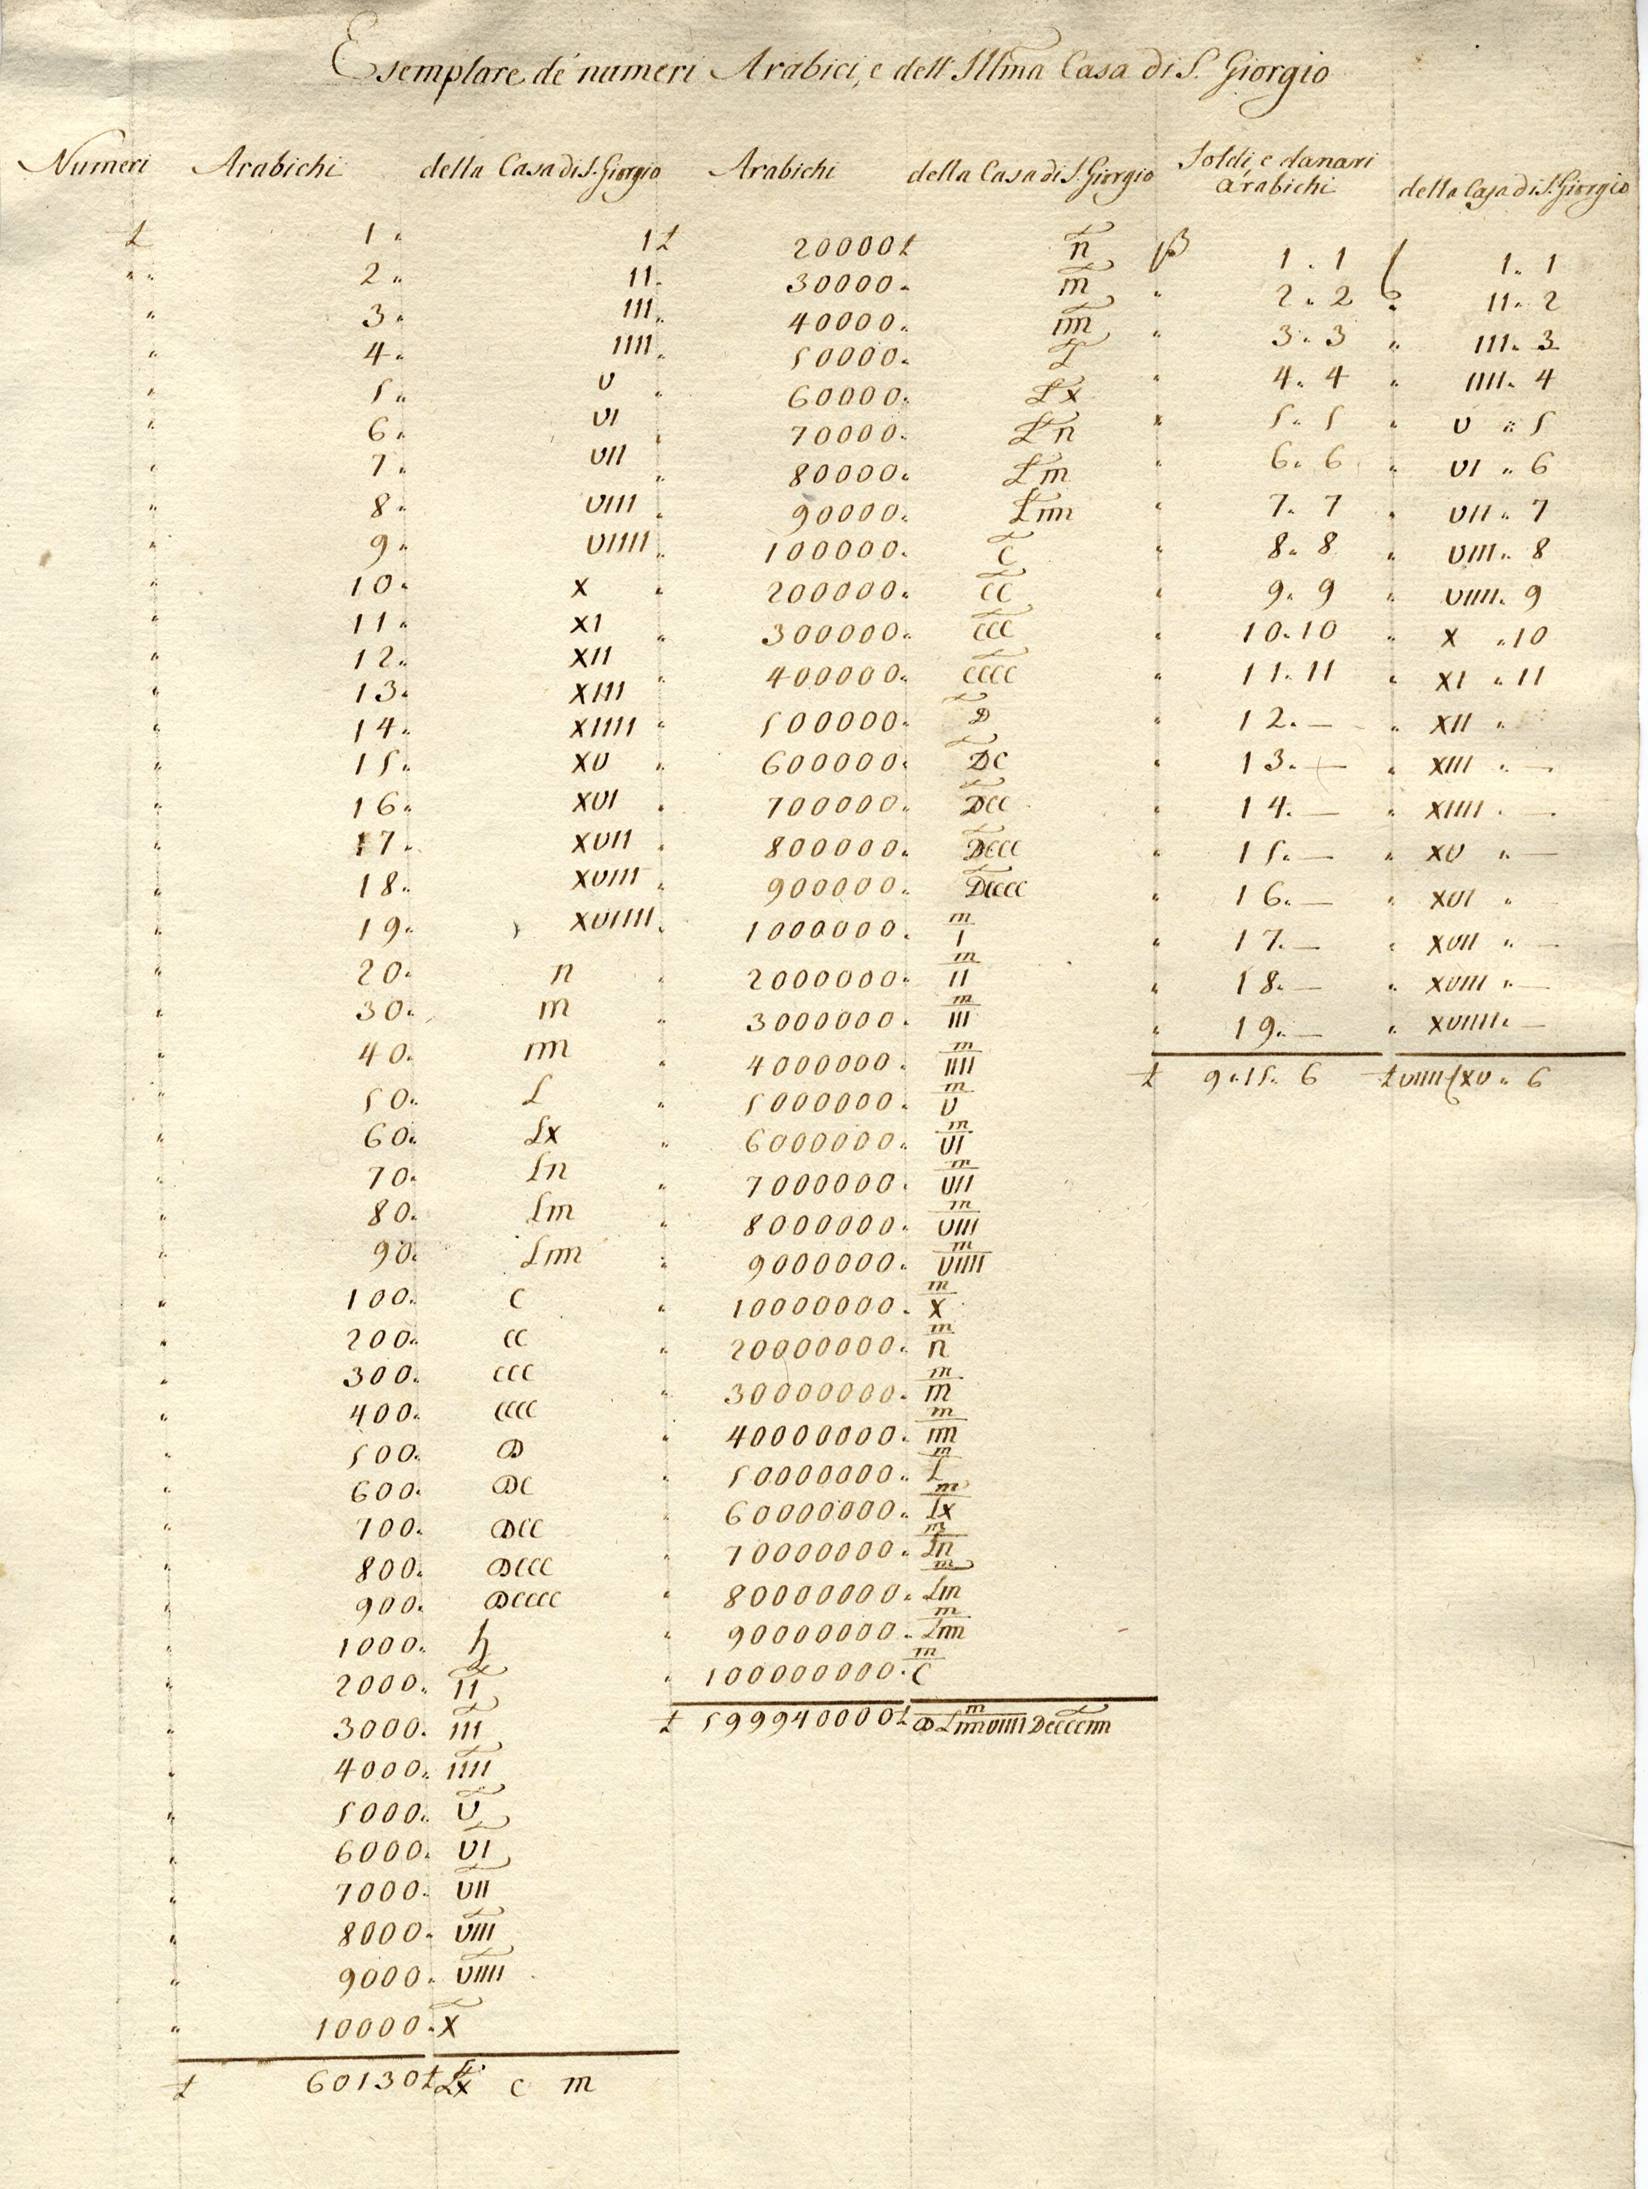 Esemplare de' numeri Arabici, e dell' Illma Casa di S. Giorgio
Numeri Arabichi della Casa di S. Giorgio Arabichi della Casa di S. Giorgio Soldi, e danari arabichi della Casa di S. Giorgio
£ 1 I £ 20000 £ n̅ 1 . 1 I . 1
2 II 30000 m̅ 2 . 2 II . 2
3 III 40000 nn̅ 3 . 3 III . 3
4 IIII 50000 L̅ 4 . 4 IIII . 4
5 U 60000 L̅x̅ 5 . 5 U . 5
6 UI 70000 L̅n̅ 6 . 6 UI . 6
7 UII 80000 L̅m̅ 7 . 7 UII . 7
8 UIII 90000 L̅nn̅ 8 . 8 UIII . 8
9 UIIII 100000 C̅ 9 . 9 UIIII . 9
10 X 200000 C̅C̅ 10 . 10 X . 10
11 XI 300000 C̅C̅C̅ 11 . 11 XI . 11
12 XII 400000 C̅C̅C̅C̅ 12 . — XII .
13 XIII 500000 D̅ 13 . — XIII . —
14 XIIII 600000 D̅C̅ 14 . — XIIII . —
15 XU 700000 D̅C̅C̅ 15 . — XU . —
16 XUI 800000 D̅C̅C̅C̅ 16 . — XUI .
17 XUII 900000 D̅C̅C̅C̅C̅ 17 . — XUII . —
18 XUIII 1000000 m/I 18 . — XUIII . —
19 XUIIII 2000000 m/II 19 . — XUIIII . —
20 n 3000000 m/III £ 9 . 15 . 6 £ UIIII XU . 6
30 m 4000000 m/IIII
40 nn 5000000 m/U
50 L 6000000 m/UI
60 Lx 7000000 m/UII
70 Ln 8000000 m/UIII
80 Lm 9000000 m/UIIII
90 Lnn 10000000 m/X
100 C 20000000 m/n
200 CC 30000000 m/m
300 CCC 40000000 m/nn
400 CCCC 50000000 m/L
500 D 60000000 m/Lx
600 DC 70000000 m/Ln
700 DCC 80000000 m/Lm
800 DCCC 90000000 m/Lnn
900 DCCCC 100000000 m/C
1000 ꜧ £ 599940000 £ m/DLnnUIIII D̅C̅C̅C̅C̅nn̅
2000 I̅I̅
3000 I̅I̅I̅
4000 I̅I̅I̅I̅
5000 U̅
6000 U̅I̅
7000 U̅I̅I̅
8000 U̅I̅I̅I̅
9000 U̅I̅I̅I̅I̅
10000 X̅
£ 60130 £ L̅x̅ C m